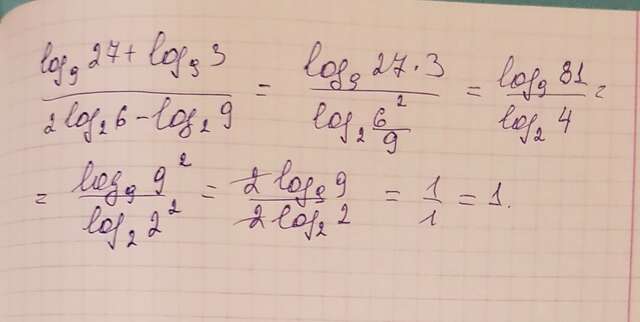 (log₉ 27 + log₉ 3) / (2 log₂ 6 - log₂ 9) = (log₉ 27 · 3) / (log₂ 6²/9) = (log₉ 81) / (log₂ 4) =
= (log₉ 9²) / (log₂ 2²) = (2 log₉ 9) / (2 log₂ 2) = 1/1 = 1.